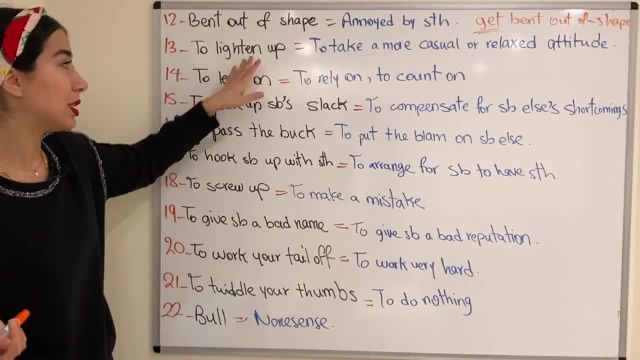 12- Bent out of shape = Annoyed by sth. get bent out of-shape
13- To lighten up = To take a more casual or relaxed attitude.
14- To on = To rely on, to count on
15- To up sb's slack = To compensate for sb else's shortcomings
pass the buck = To put the blam on sb else.
To hook sb up with sth = To arrange for sb to have sth.
18- To screw up = To make a mistake
19- To give sb a bad name = To give sb a bad reputation.
20- To work your tail off = To work very hard.
21- To twiddle your thumbs = To do nothing
22- Bull = Nonesense.